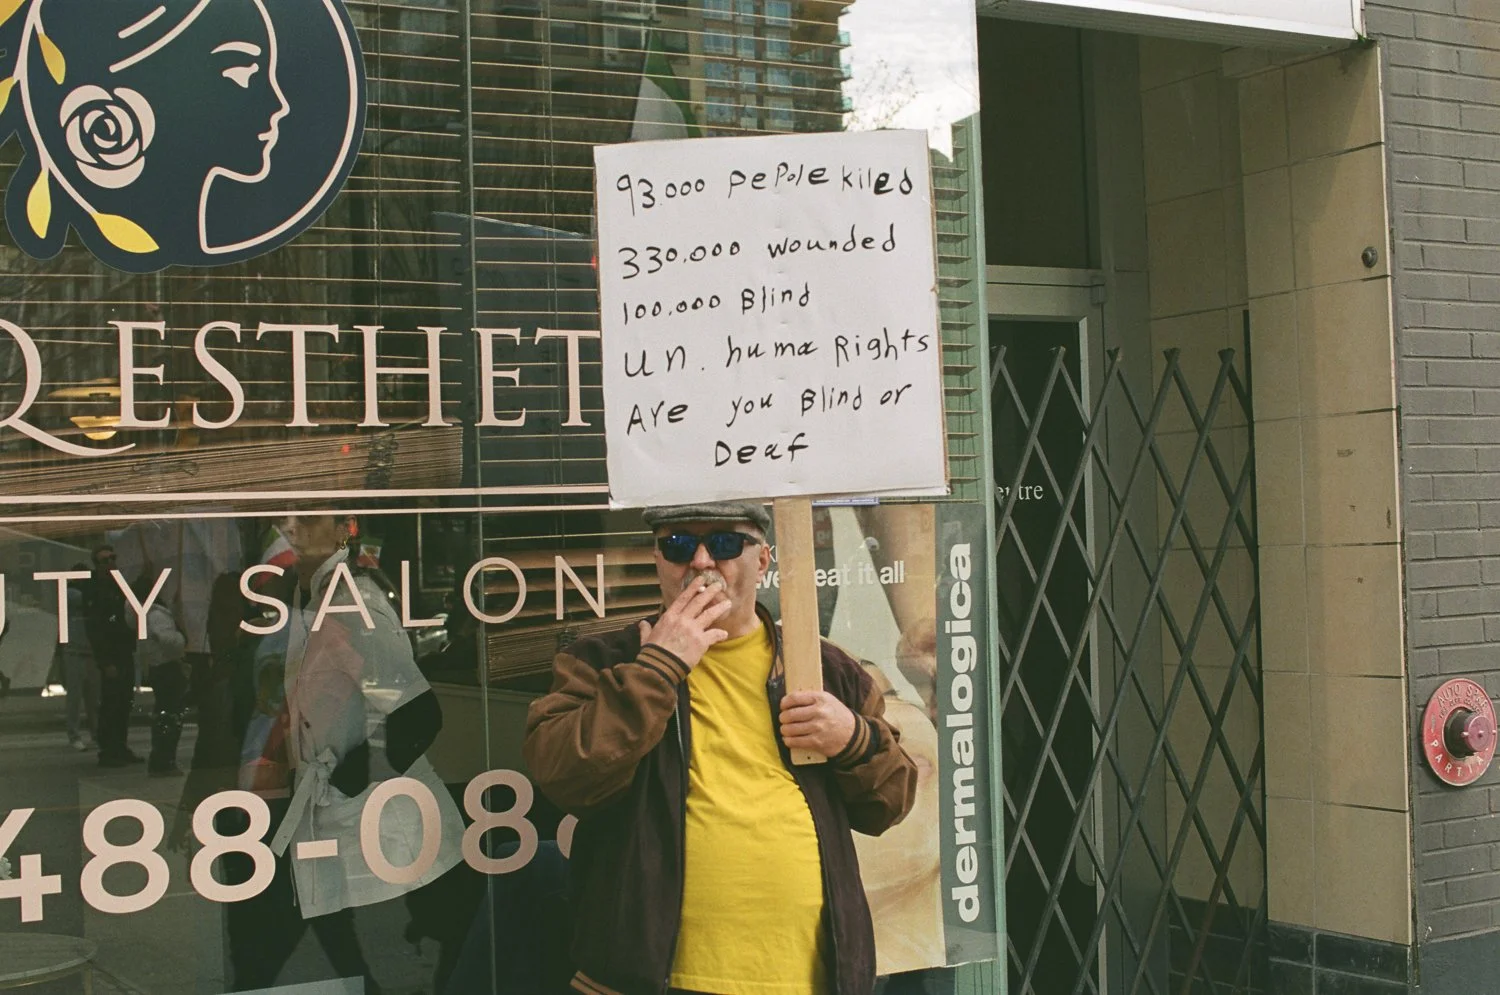 93.000 pePole kiled
330.000 wounded
100.000 Blind
UN. huma Rights
Are you Blind or
Deaf
Q ESTHET
UTY SALON
488-08
eat it all
dermalogica
entre
AUTO SPKR
PARTIAL